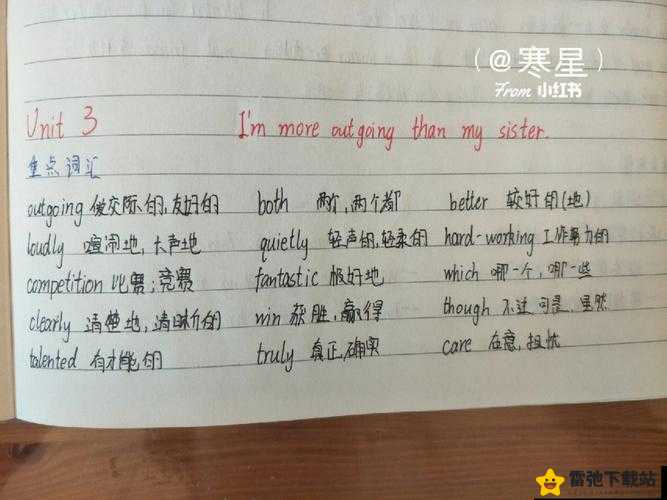 (@寒星)
From 小红书
Unit 3 I'm more outgoing than my sister.
重点词汇
outgoing 爱交际的,友好的 both 两个,两个都 better 较好的(地)
loudly 喧闹地,大声地 quietly 轻声的,轻柔的 hard-working 工作努力的
competition 比赛;竞赛 fantastic 极好地 which 哪一个,哪一些
clearly 清楚地,清晰的 win 获胜,赢得 though 不过 可是,虽然
talented 有才能的 truly 真正,确实 care 在意,担忧
雷弛下载站